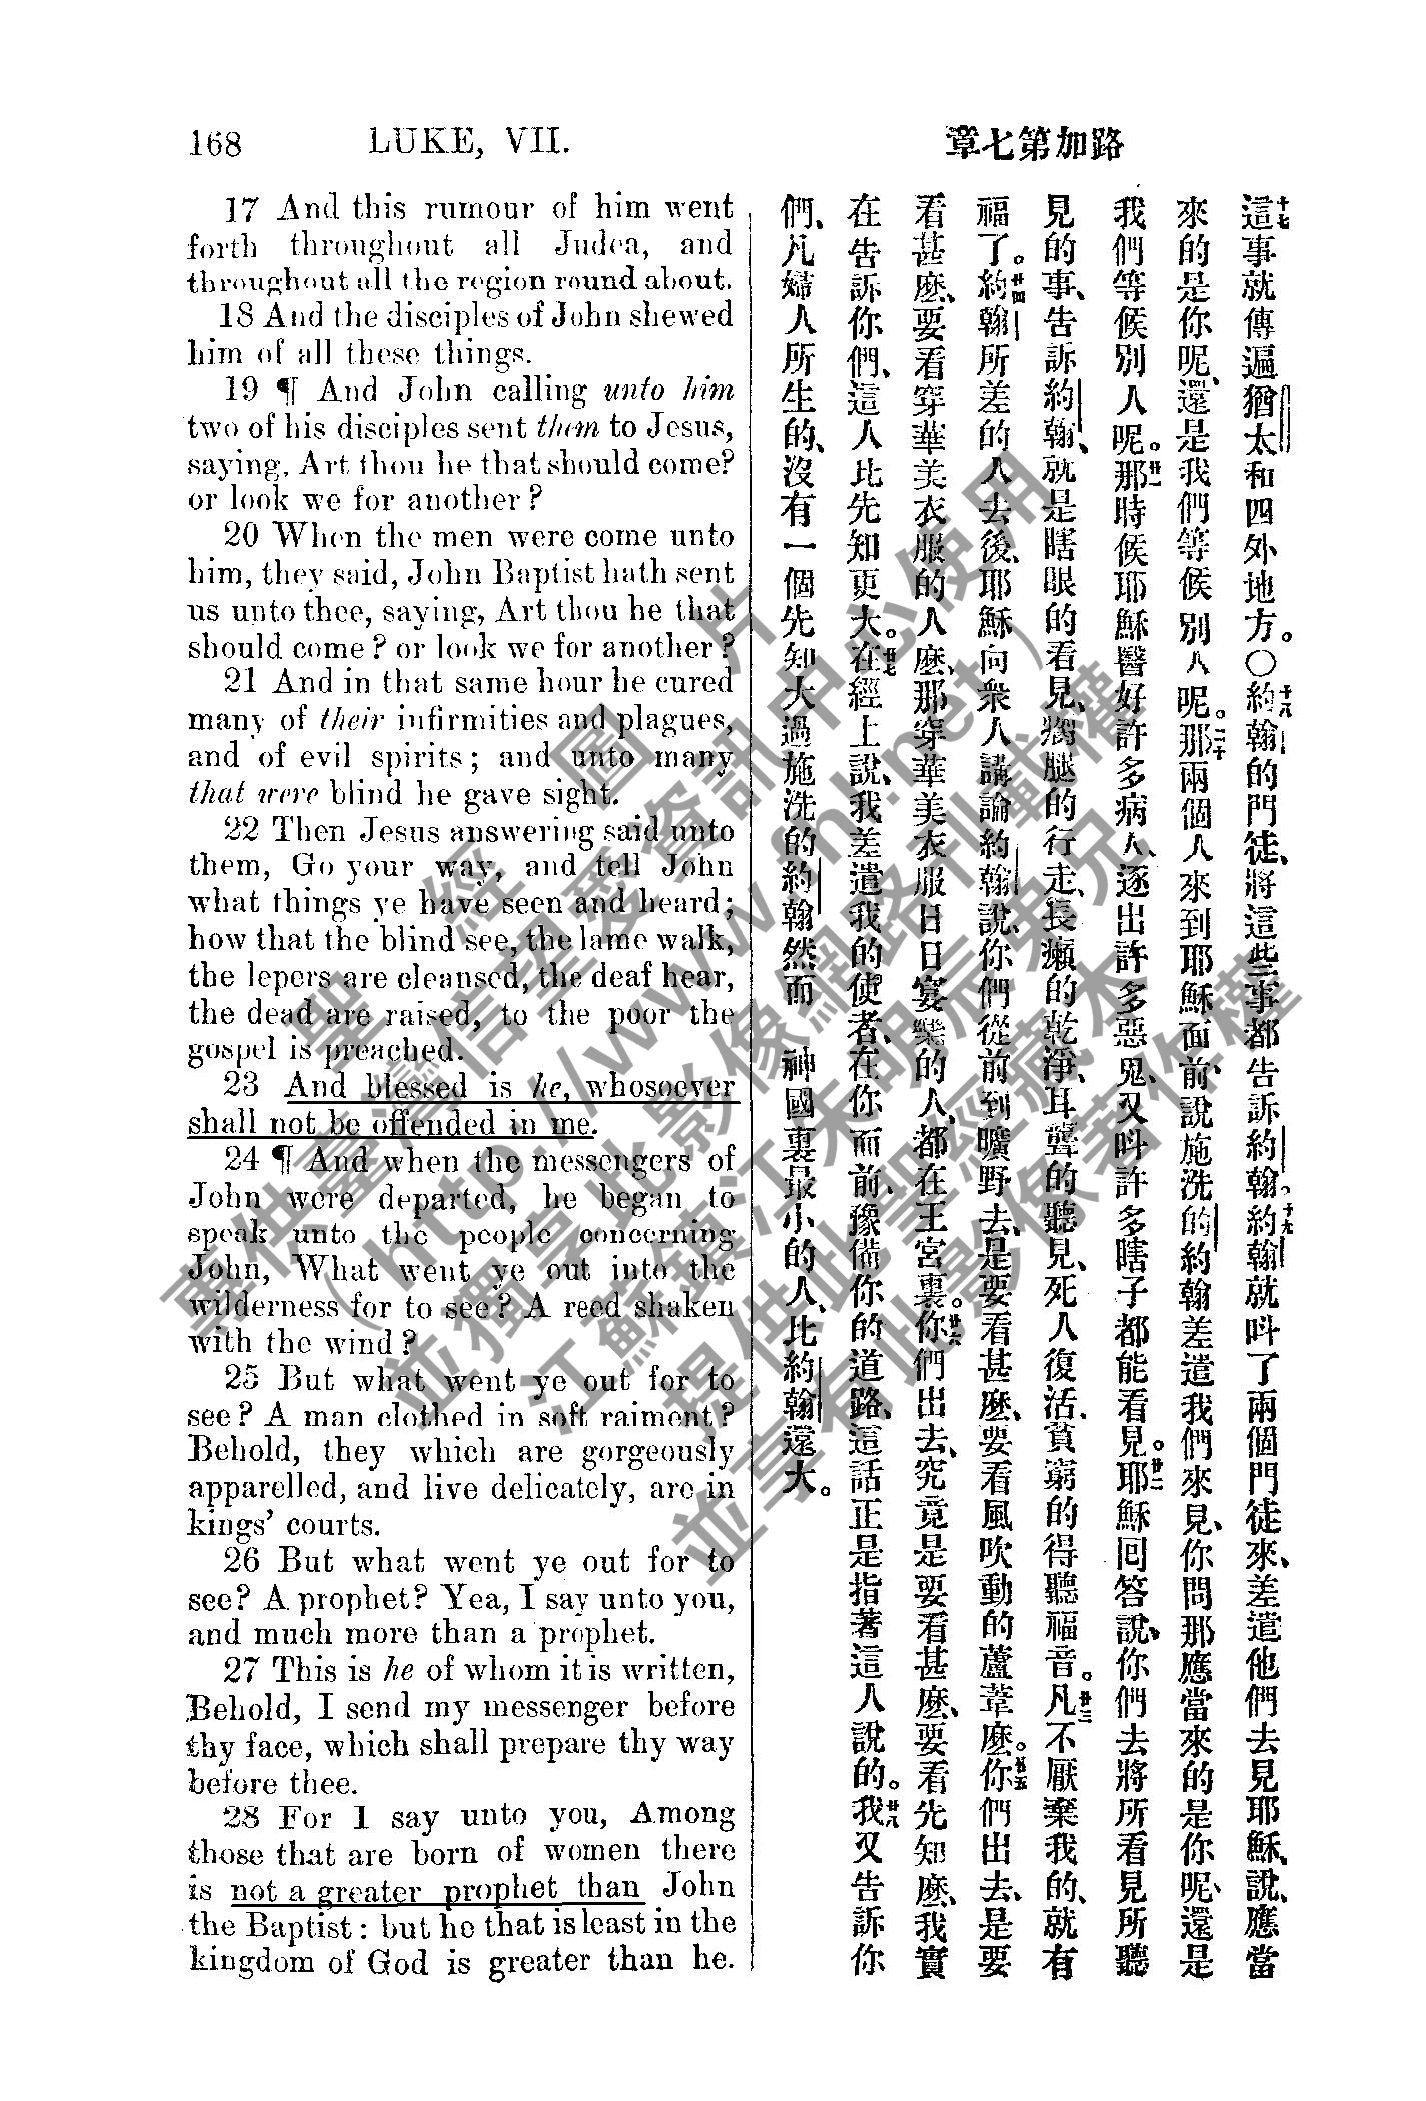 168 LUKE, VII.
章七第加路
17 And this rumour of him went
forth throughout all Judea, and
throughout all the region round about.
18 And the disciples of John shewed
him of all these things.
19 ¶ And John calling unto him
two of his disciples sent them to Jesus,
saying, Art thou he that should come?
or look we for another?
20 When the men were come unto
him, they said, John Baptist hath sent
us unto thee, saying, Art thou he that
should come? or look we for another?
21 And in that same hour he cured
many of their infirmities and plagues,
and of evil spirits; and unto many
that were blind he gave sight.
22 Then Jesus answering said unto
them, Go your way, and tell John
what things ye have seen and heard;
how that the blind see, the lame walk,
the lepers are cleansed, the deaf hear,
the dead are raised, to the poor the
gospel is preached.
23 And blessed is he, whosoever
shall not be offended in me.
24 ¶ And when the messengers of
John were departed, he began to
speak unto the people concerning
John, What went ye out into the
wilderness for to see? A reed shaken
with the wind?
25 But what went ye out for to
see? A man clothed in soft raiment?
Behold, they which are gorgeously
apparelled, and live delicately, are in
kings' courts.
26 But what went ye out for to
see? A prophet? Yea, I say unto you,
and much more than a prophet.
27 This is he of whom it is written,
Behold, I send my messenger before
thy face, which shall prepare thy way
before thee.
28 For I say unto you, Among
those that are born of women there
is not a greater prophet than John
the Baptist: but he that is least in the
kingdom of God is greater than he.
十七這事就傳遍猶太和四外地方。〇十八約翰的門徒、將這些事都告訴約翰。十九約翰就呌了兩個門徒來、差遣他們去見耶穌、說、應當
來的是你呢、還是我們等候別人呢。二十那兩個人來到耶穌面前、說、施洗的約翰差遣我們來見你、問那應當來的是你呢、還是
我們等候別人呢。廿一那時候耶穌醫好許多病人、逐出許多惡鬼、又呌許多瞎子都能看見。廿二耶穌回答說、你們去將所看見所聽
見的事、告訴約翰、就是瞎眼的看見、瘸腿的行走、長癩的乾淨、耳聾的聽見、死人復活、貧窮的得聽福音。廿三凡不厭棄我的、就有
福了。廿四約翰所差的人去後、耶穌向衆人講論約翰說、你們從前到曠野去、是要看甚麽、要看風吹動的蘆葦麽。廿五你們出去、是要
看甚麽、要看穿華美衣服的人麽、那穿華美衣服日日宴樂的人、都在王宮裏。廿六你們出去、究竟是要看甚麽、要看先知麽、我實
在告訴你們、這人比先知更大。廿七在經上說、我差遣我的使者、在你面前、豫備你的道路、這話正是指著這人說的。廿八我又告訴你
們、凡婦人所生的、沒有一個先知大過施洗的約翰然而 神國裏最小的人、比約翰還大。
聖經圖片
專供臺灣信望愛資訊中心使用
(http://www.fhl.net)
並獨享此影像網路刊載權
江蘇鎮江宋明宸弟兄
提供此聖經藏本
並享有此影像著作權